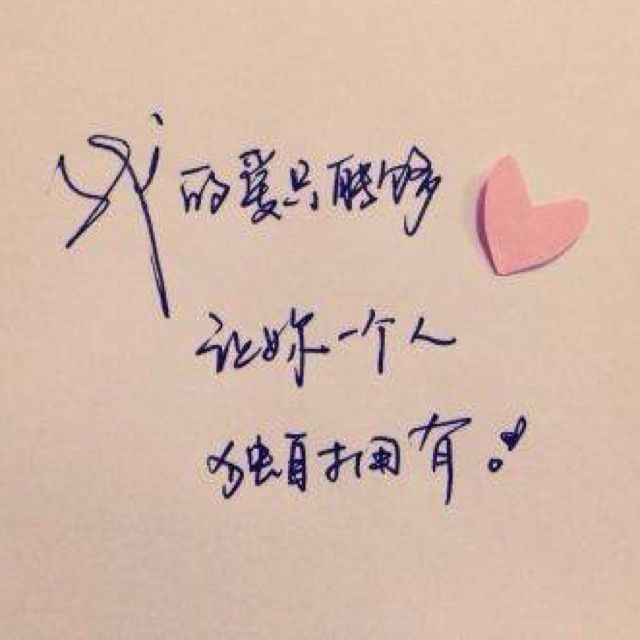 我的爱只能够
让妳一个人
独自拥有!